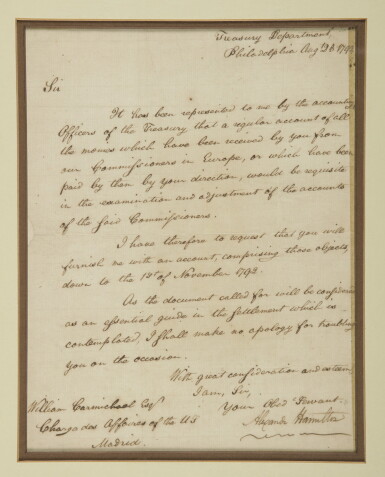 Treasury Department,
Philadelphia Augt 1793
Sir
It has been represented to me by the accounting
Officers of the Treasury that a regular account of all
the monies which have been received by you from
our Commissioners in Europe, or which have been
paid by them by your direction, would be requisite
in the examination and adjustment of the accounts
of the said Commissioners.
I have therefore to request that you will
furnish me with an account, comprising those objects,
down to the 1st of November 1792.
As the document called for will be considered
as an essential guide in the settlement which is
contemplated, I shall make no apology for troubling
you on the occasion.
With great consideration and esteem
I am, Sir,
Your Obed Servant
Alexander Hamilton
William Carmichael Esqr
Charge des Affaires of the US
Madrid.